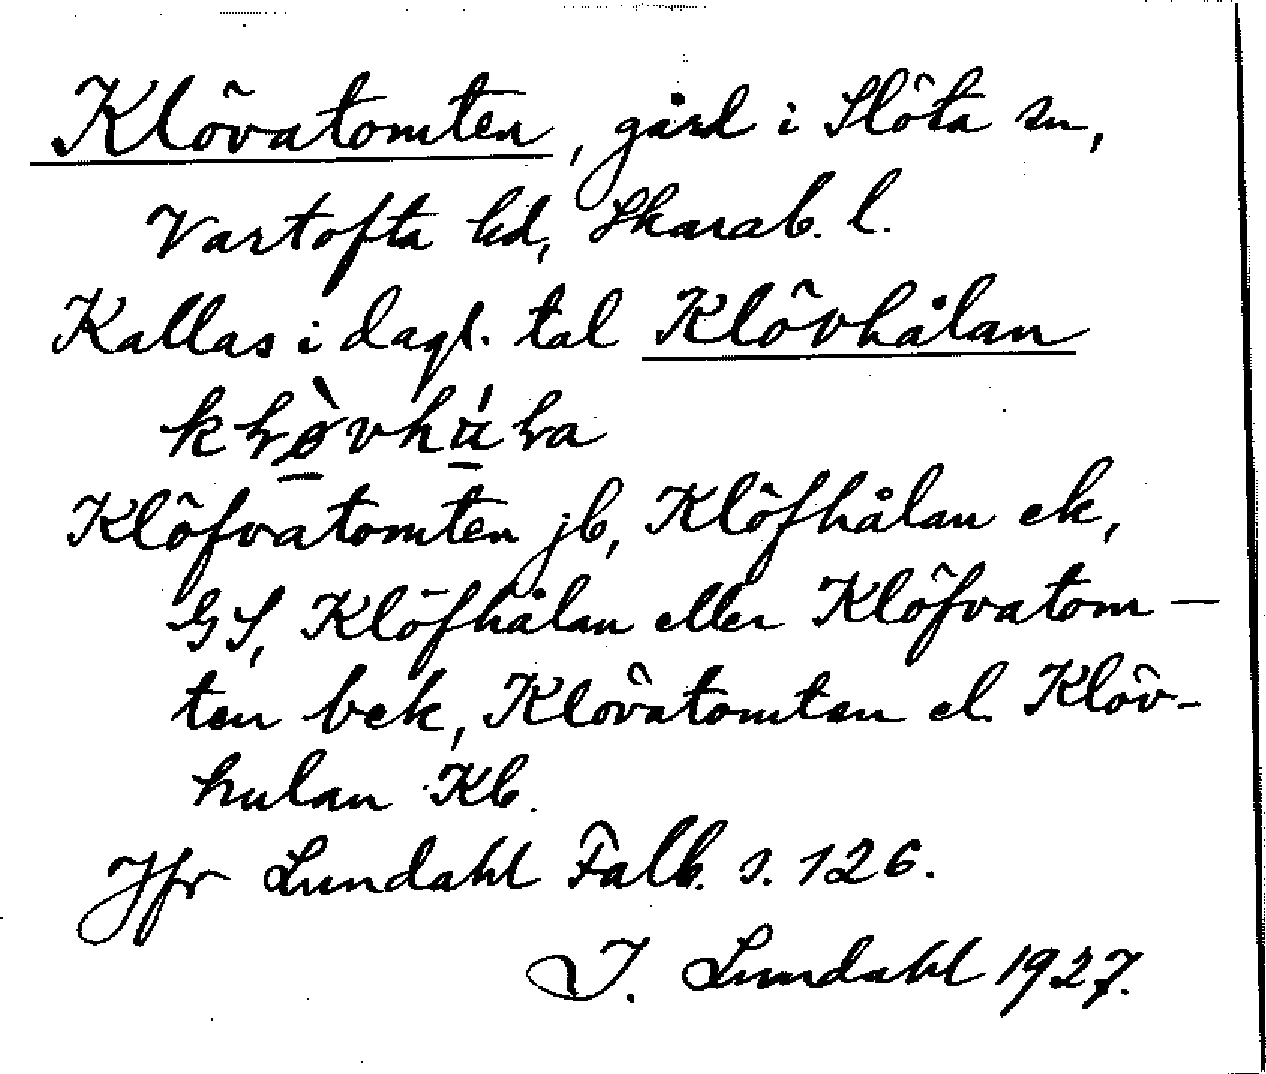 Klövatomten, gård i Slöta sn,
Vartofta hd, Skarab. l.
Kallas i dagl. tal Klövhålan
Klöfvatomten jb, Klöfhålan ek,
GS, Klöfhålan eller Klöfvatom-
ten bek, Klövatomten el. Klöv-
hulan Kb.
Jfr Lundahl Falb. s. 126.
I. Lundahl 1927.